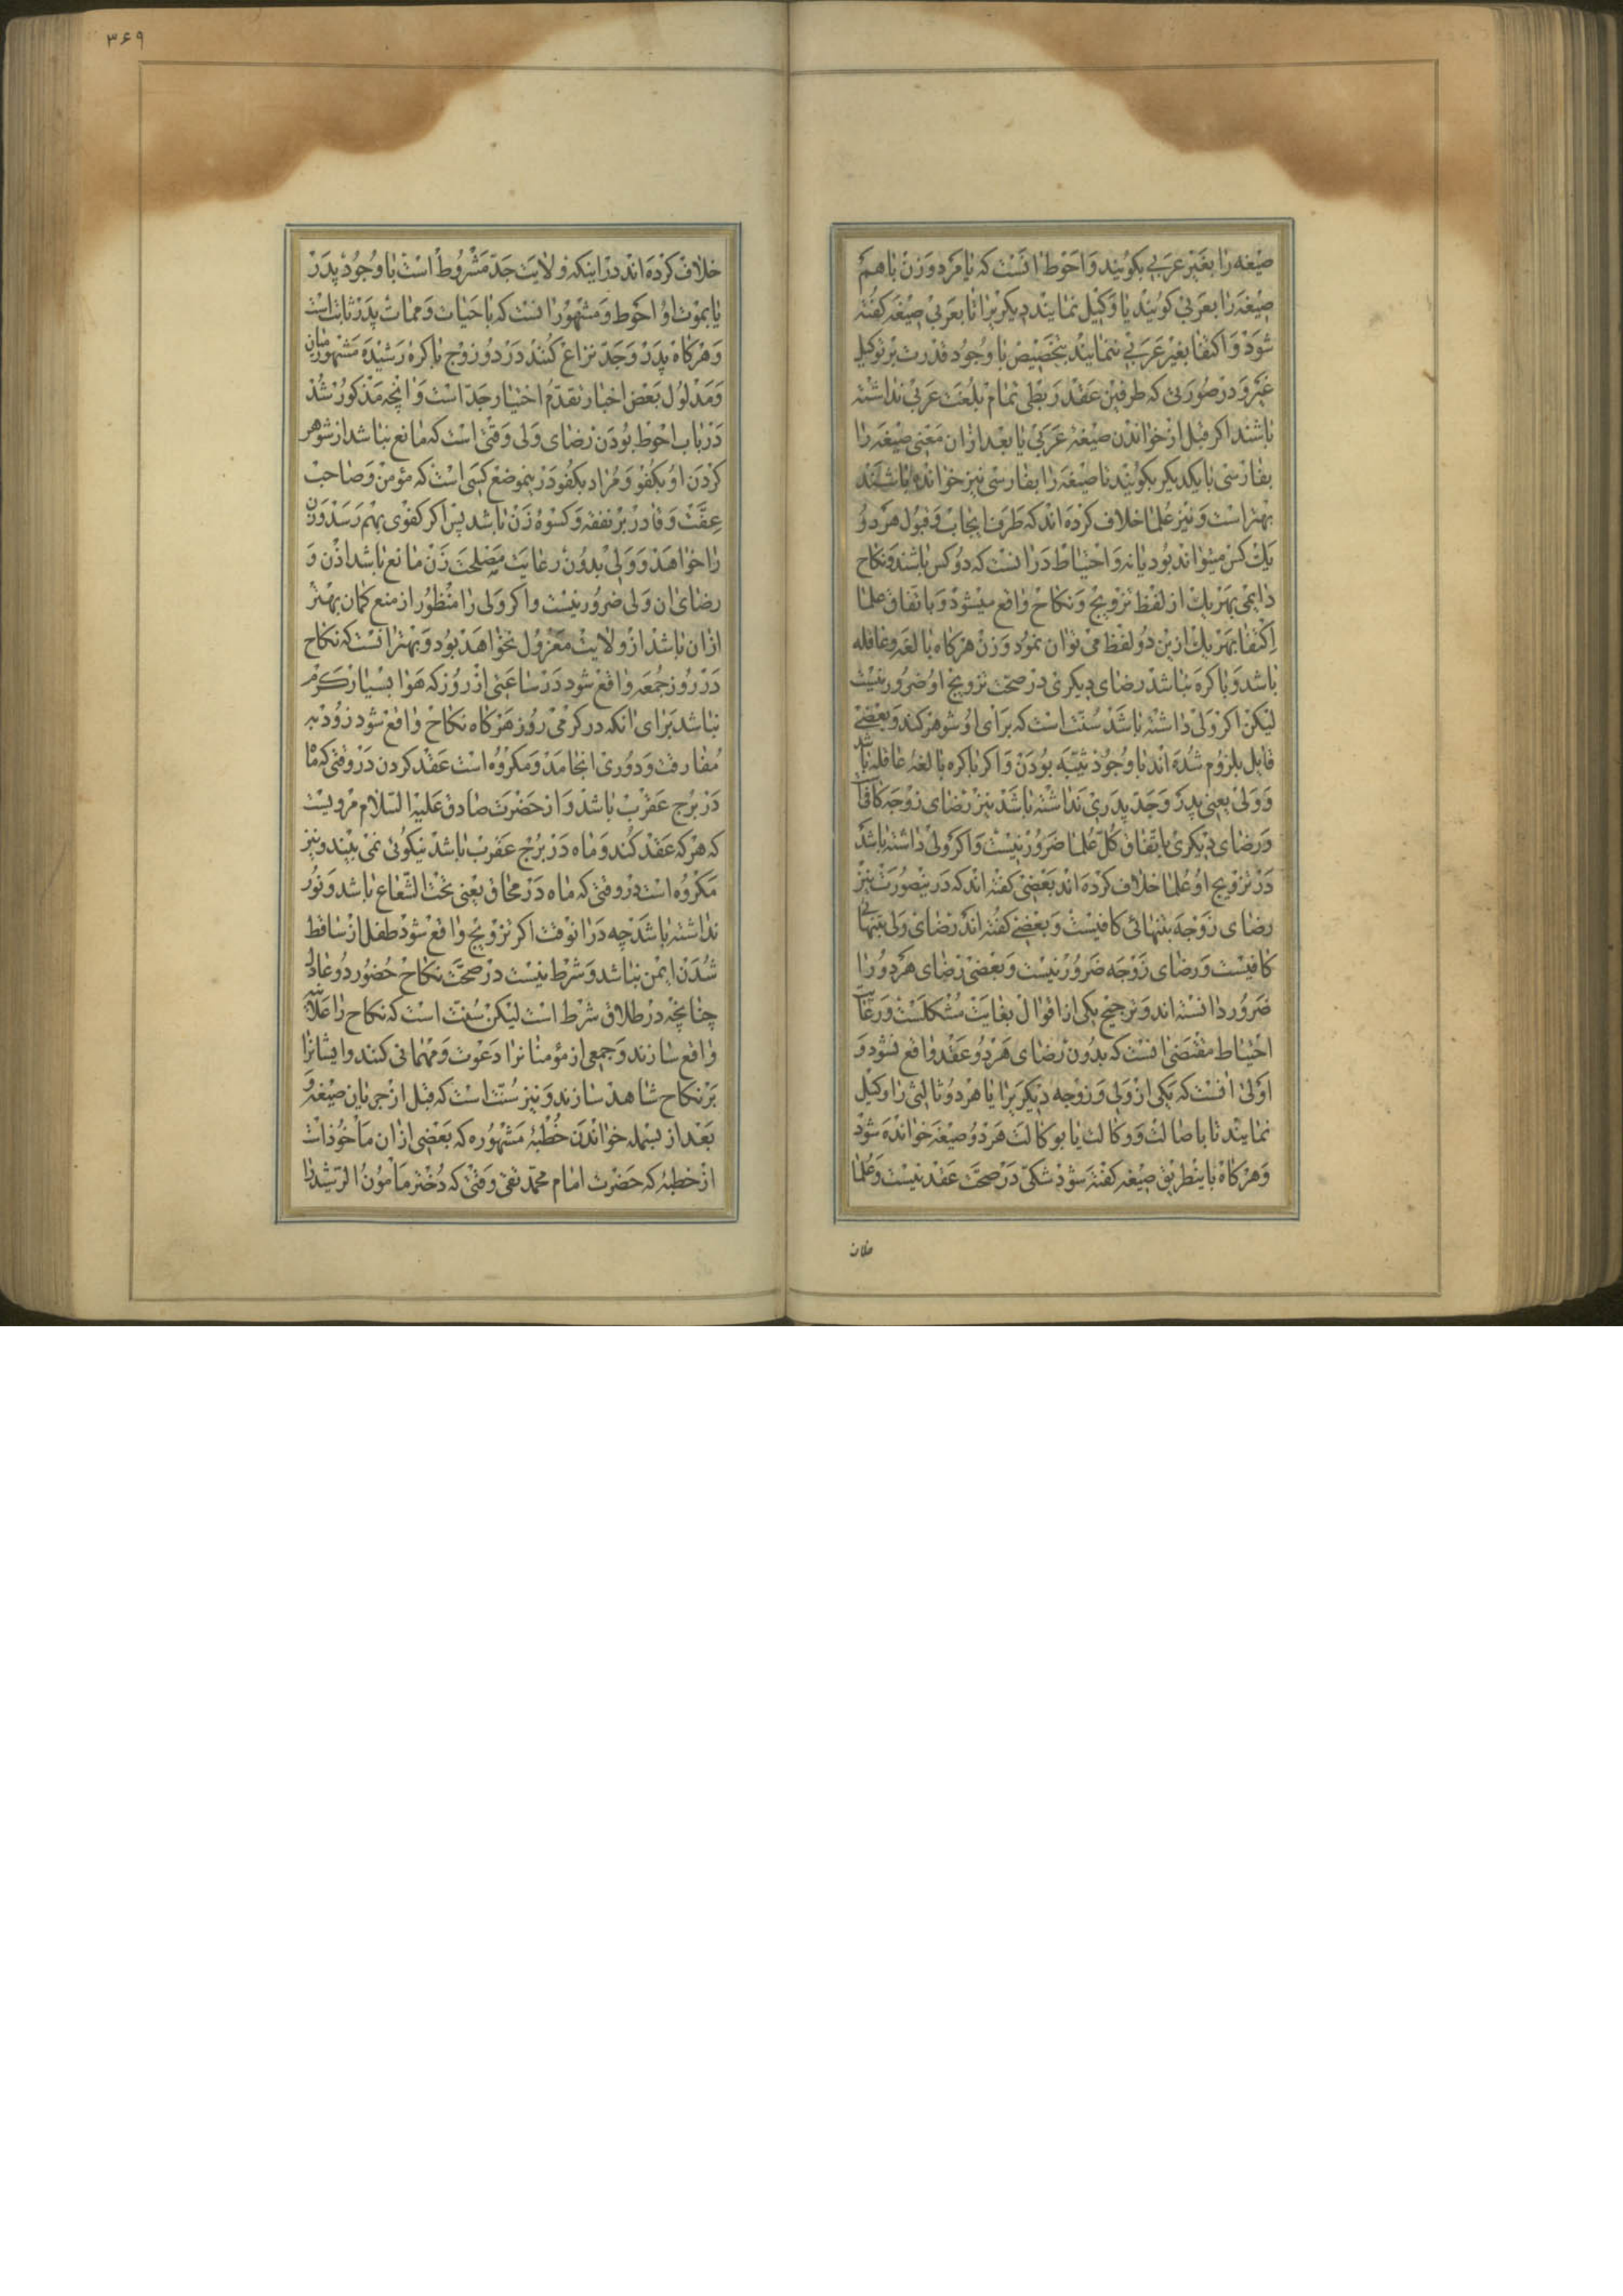 صیغه را بغیر عربی بکویند و احوط انست که یا مرد و زن باهم
صیغه را بعربی کویند یا وکیل نمایند دیکریرا تا بعربی صیغه کفته
شود و اکتفا بغیر عربی ننمایند بتخصیص با وجود قدرت بر توکیل
غیر و در صورتی که طرفین عقد ربطی تمام بلغت عربی نداشته
باشند اکر قبل از خواندن صیغهٔ عربی یا بعد ازان معنی صیغه را
بفارسی با یکدیکر بکویند تا صیغه را بفارسی نیز خوانده باشند
بهتر است و نیز علما خلاف کرده اند که طرف ایجاب و قبول هر دو
یک کس میتواند بود یا نه و احتیاط در انست که دو کس باشند و نکاح
دایمی بهر یک از لفظ تزویج و نکاح واقع میشود و باتفاق علما
اکتفا بهر یک ازین دو لفظ می توان نمود و زن هرکاه بالغه و عاقله
باشد و باکره نباشد رضای دیکری در صحت تزویج او ضرور نیست
لیکن اکر ولی داشته باشد سنت است که برای او شوهر کند و بعضی
قایل بلزوم شده اند با وجود ثیبه بودن و اکر باکره بالغه عاقله باشد
و ولی یعنی پدر و جد پدری نداشته باشد نیز رضای زوجه کافیست
و رضای دیکری باتفاق کل علما ضرور نیست و اکر ولی داشته باشد
در تزویج او علما خلاف کرده اند بعضی کفته اند که درینصورت نیز
رضای زوجه بتنهائی کافیست و بعضی کفته اند رضای ولی بتنهائی
کافیست و رضای زوجه ضرور نیست و بعضی رضای هر دو را
ضرور دانسته اند و ترجیح یکی از اقوال بغایت مشکلست و رعایت
احتیاط مقتضی انست که بدون رضای هر دو عقد واقع نشود و
اولی انست که یکی از ولی و زوجه دیکریرا یا هر دو ثالثی را وکیل
نمایند تا باصالت و وکالت یا بوکالت هر دو صیغه خوانده شود
و هرکاه باینطریق صیغه کفته شود شکی در صحت عقد نیست و علما
خلاف
۳۶۹
خلاف کرده اند در اینکه ولایت جد مشروط است با وجود پدر
یا بموت او احوط و مشهور انست که با حیات و ممات پدر ثابت است
و هرکاه پدر و جد نزاع کنند در دو زوج باکرهٔ رشیده مشهور میان
و مدلول بعض اخبار تقدم اختیار جد است و انچه مذکور شد
در باب احوط بودن رضای ولی وقتی است که مانع نباشد از شوهر
کردن او بکفو و مراد بکفو درینموضع کسی است که مؤمن و صاحب
عفت و قادر بر نفقه و کسوهٔ زن باشد پس اکر کفوی بهم رسد و زن او
را خواهد و ولی بدون رعایت مصلحت زن مانع باشد اذن و
رضای ان ولی ضرور نیست و اکر ولی را منظور از منع کمان بهتر
ازان باشد از ولایت معزول نخواهد بود و بهتر انست که نکاح
در روز جمعه واقع شود در ساعتی از روز که هوا بسیار کرم
نباشد برای انکه در کرمی روز هرکاه نکاح واقع شود زود به
مفارقت و دوری انجامد و مکروه است عقد کردن در وقتی که ماه
در برج عقرب باشد و از حضرت صادق علیه السلام مرویست
که هرکه عقد کند و ماه در برج عقرب باشد نیکوئی نمی بیند و نیز
مکروه است در وقتی که ماه در محاق یعنی تحت الشعاع باشد و نور
نداشته باشد چه در انوقت اکر تزویج واقع شود طفل از ساقط
شدن ایمن نباشد و شرط نیست در صحت نکاح حضور دو عادل
چنانچه در طلاق شرط است لیکن سنت است که نکاح را علانیه
واقع سازند و جمعی از مؤمنانرا دعوت و مهمانی کنند و ایشانرا
بر نکاح شاهد سازند و نیز سنت است که قبل از جریان صیغه و
بعد از بسمله خواندن خطبهٔ مشهوره که بعضی ازان ماخوذ است
از خطبهٔ که حضرت امام محمد تقی وقتی که دختر مامون الرشید را